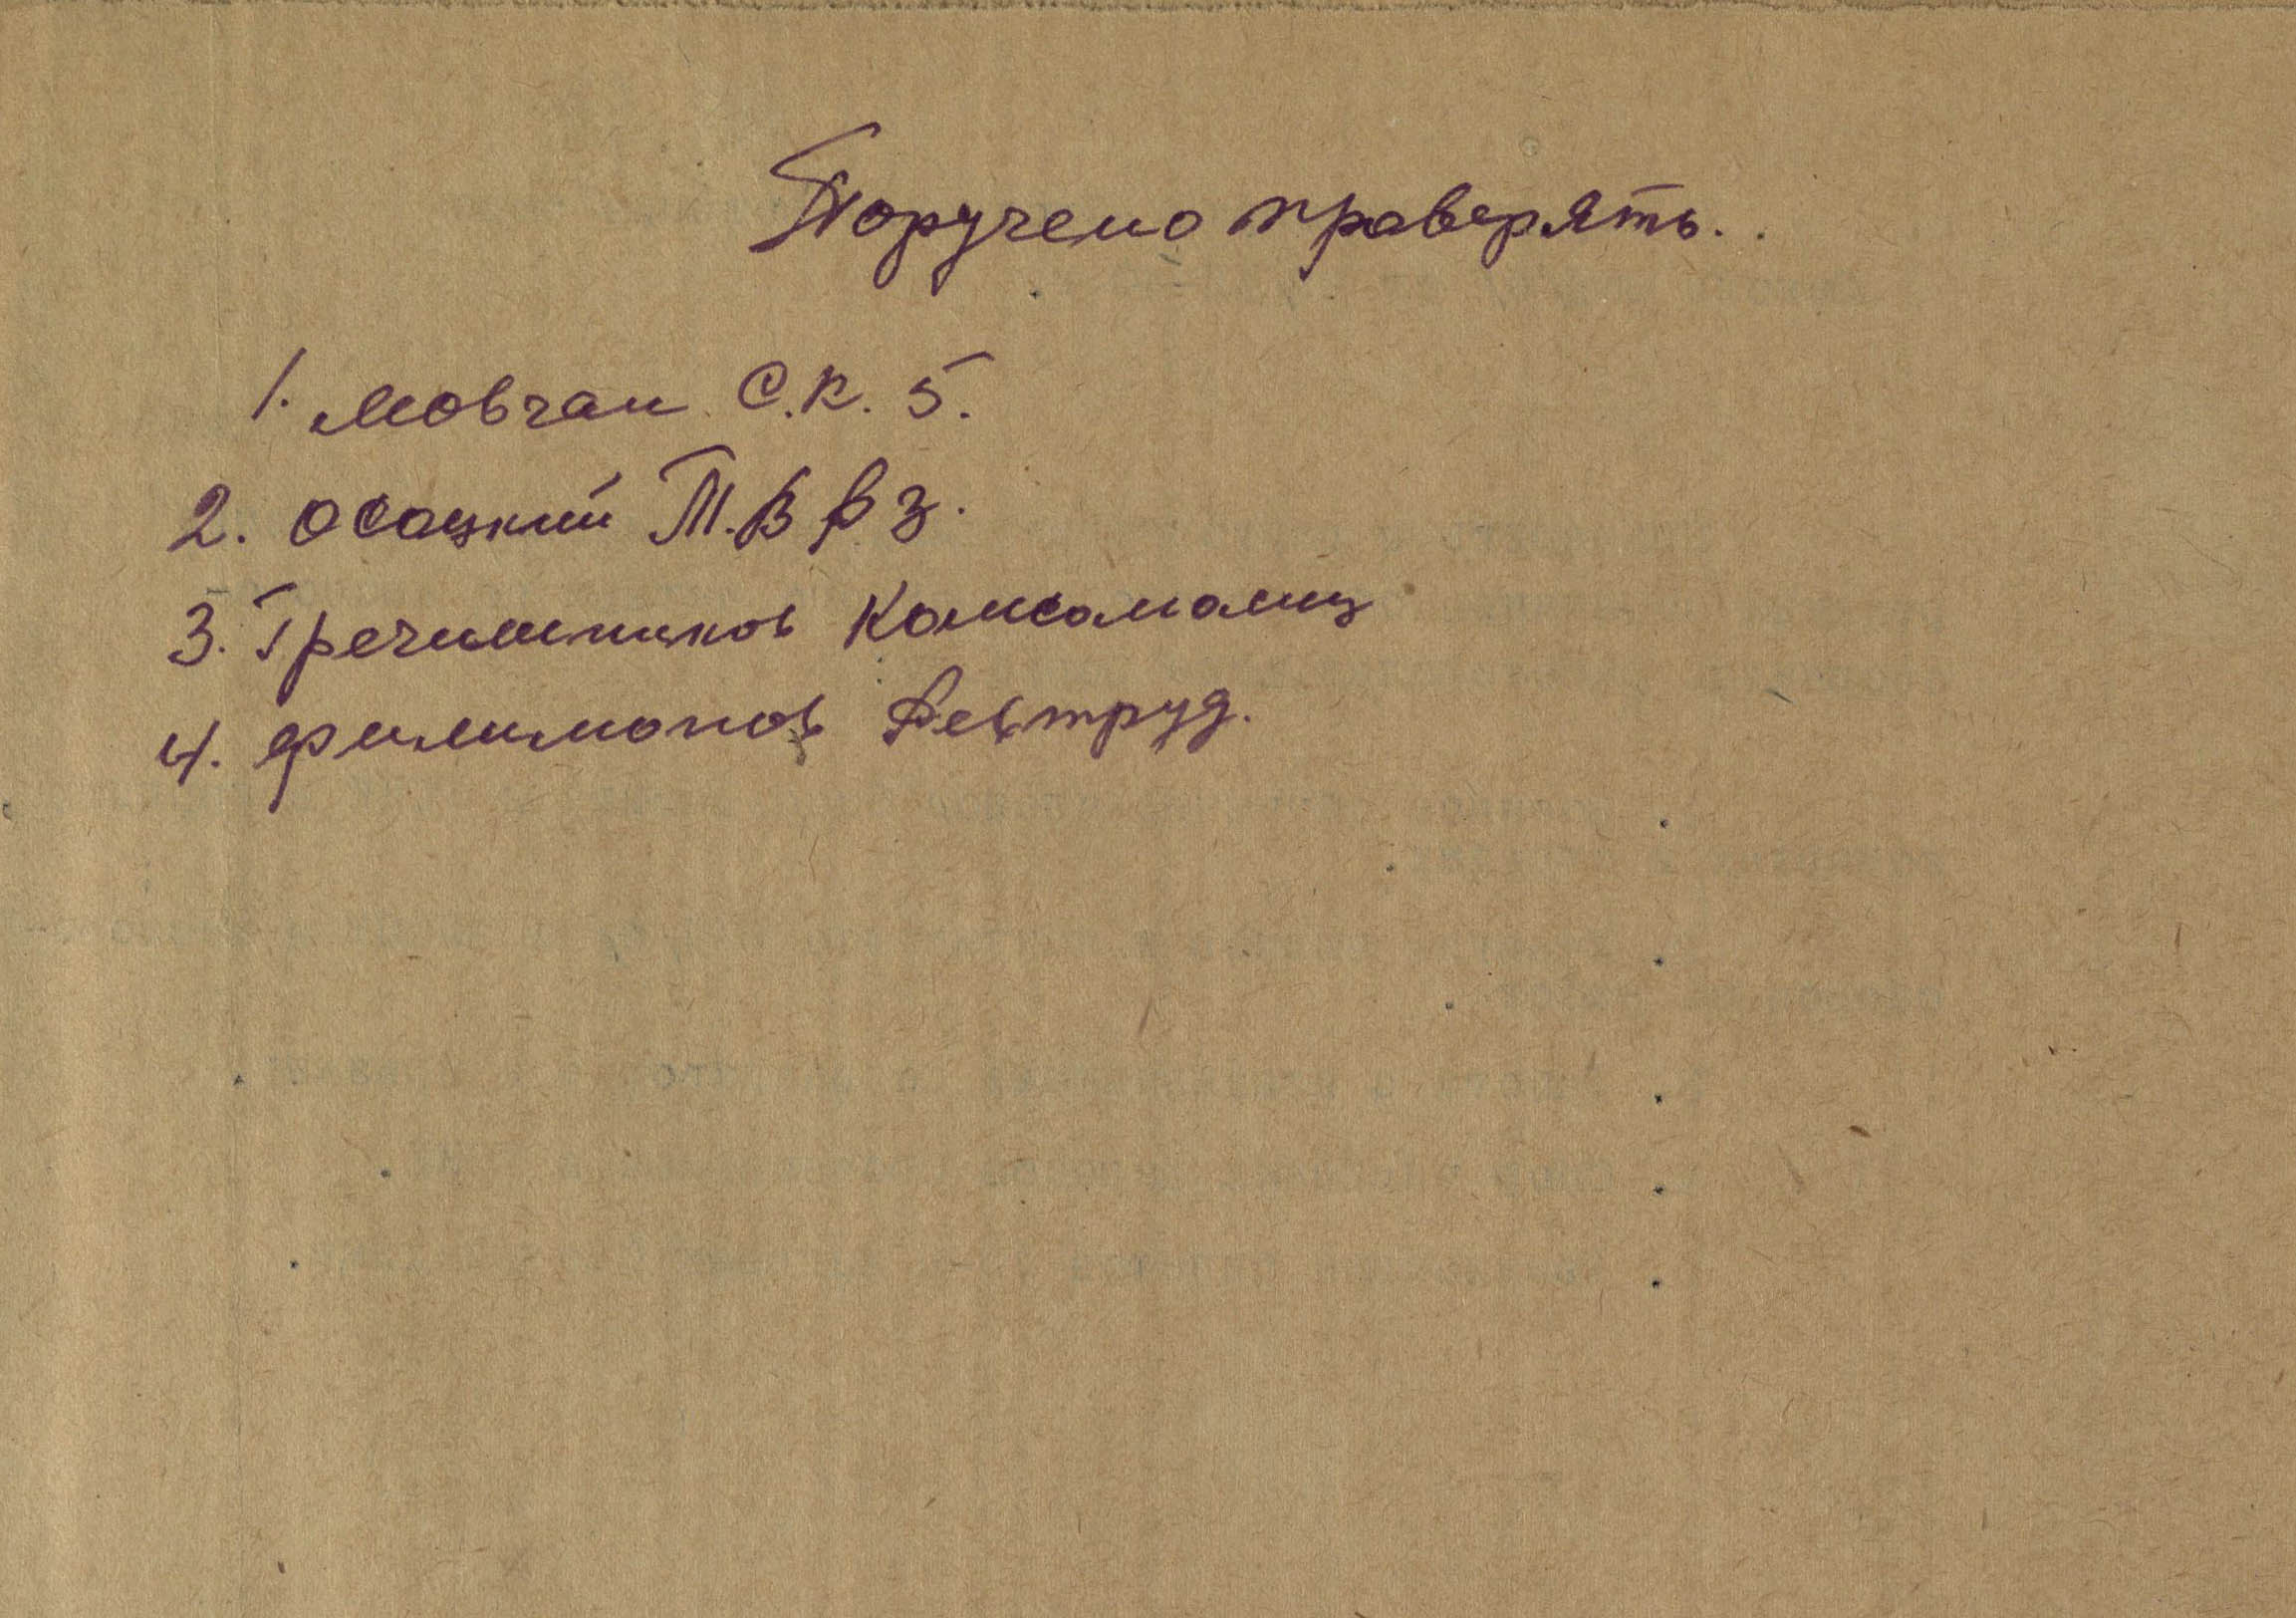 Поручено праверять.
1. Мовчан С.К. 5.
2. Осацкий Т.В В З.
3. Гречишников Комсамолиц
4. Филимонов Ревтруд.